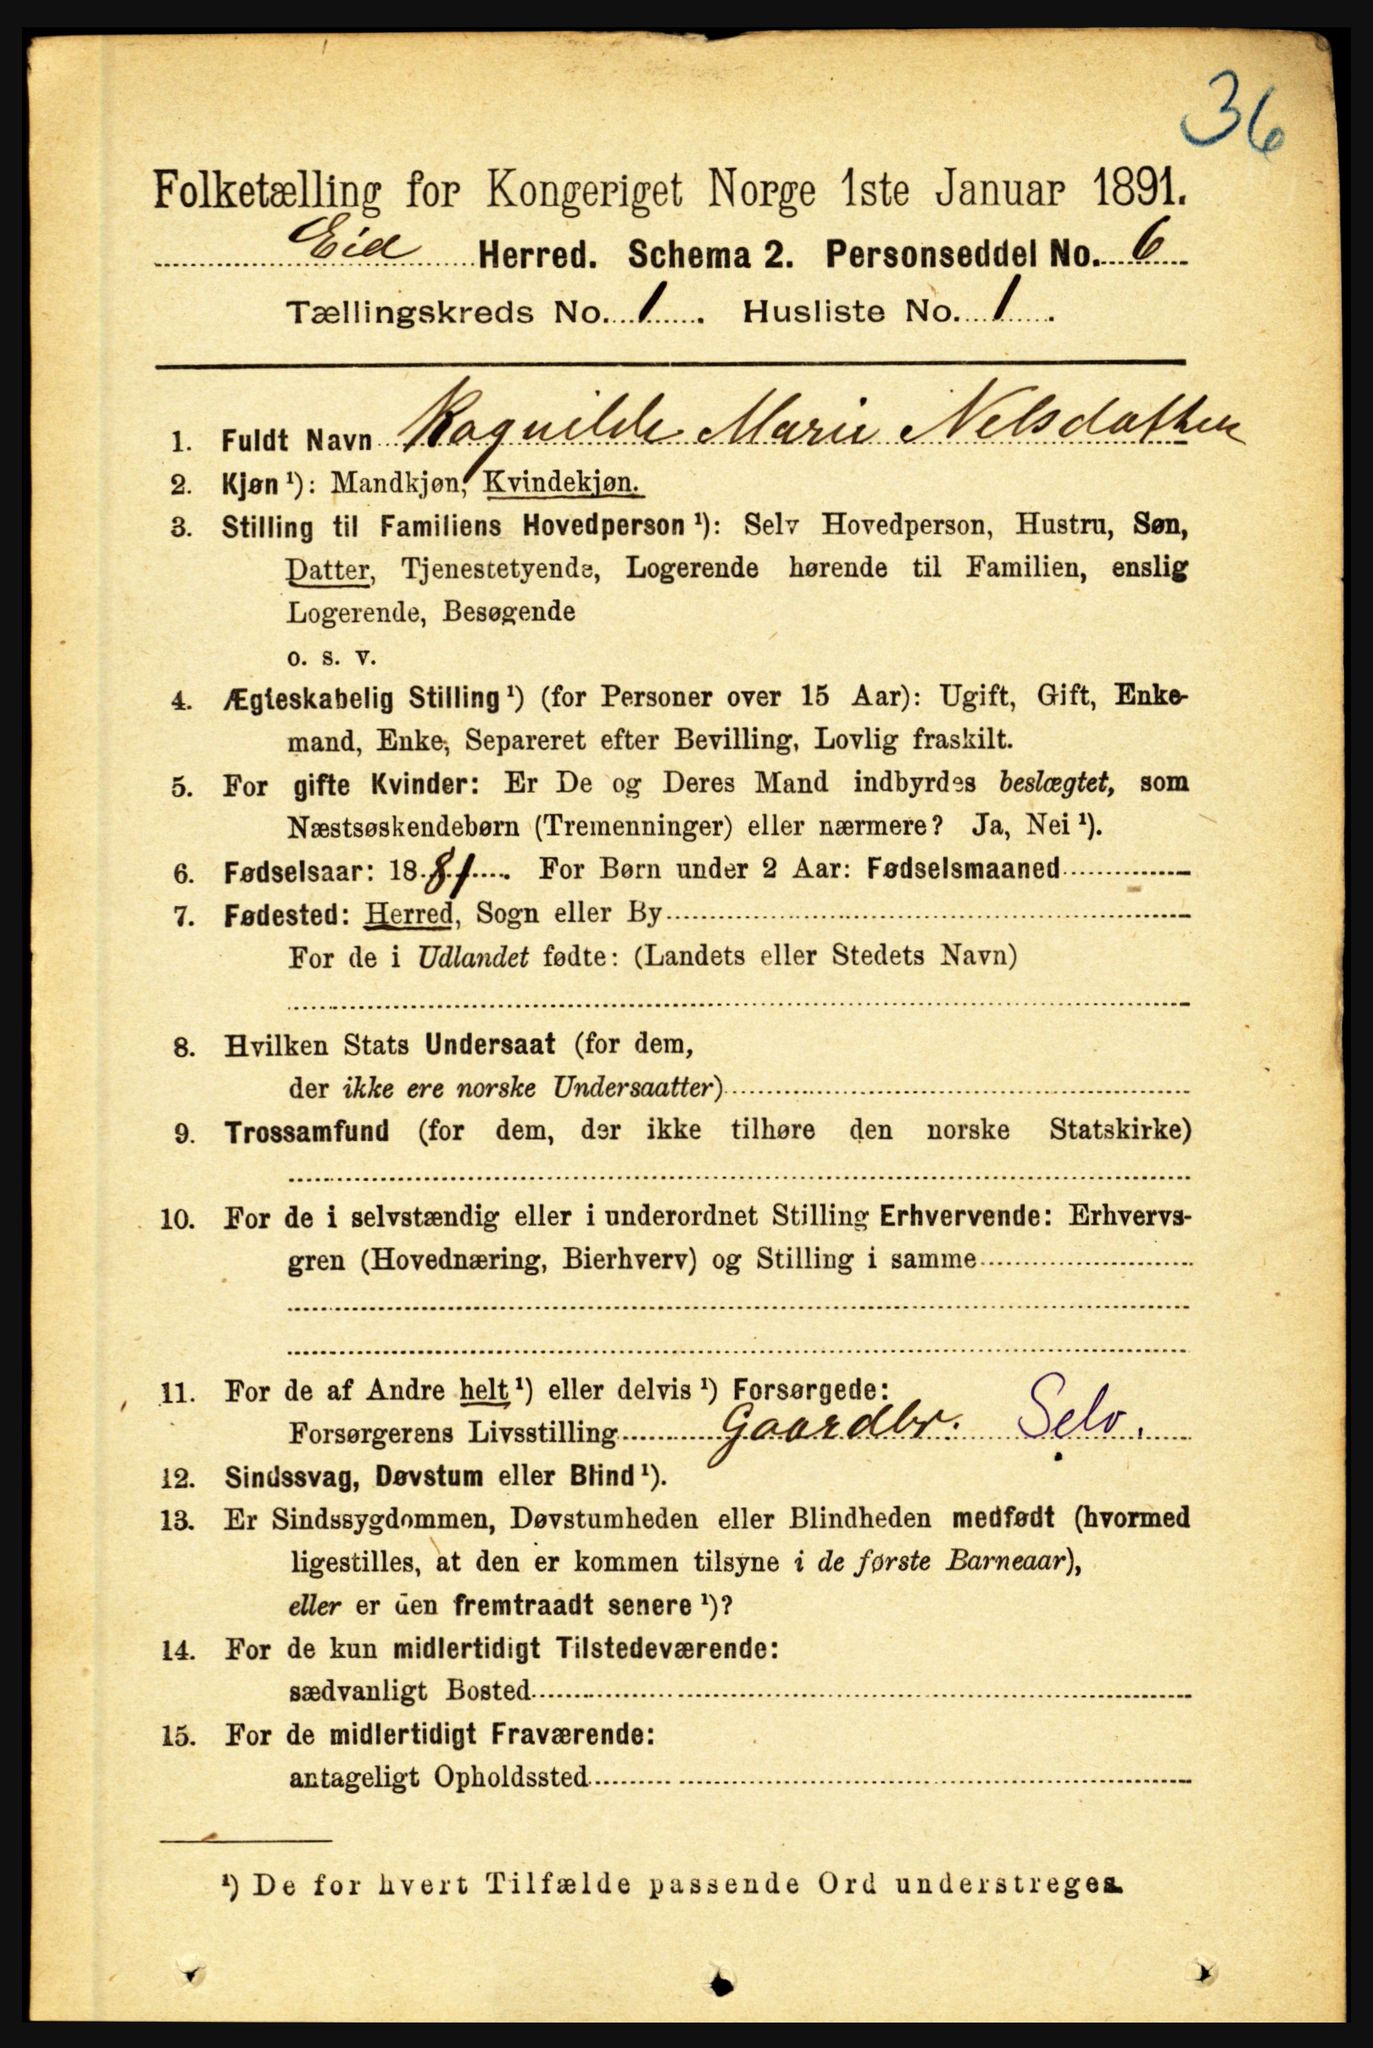 36
Folketælling for Kongeriget Norge 1ste Januar 1891.
Eid Herred. Schema 2. Personseddel No. 6
Tællingskreds No. 1. Husliste No. 1.
1. Fuldt Navn Ragnilde Marie Nelsdatter
2. Kjøn ¹): Mandkjøn, Kvindekjøn.
3. Stilling til Familiens Hovedperson ¹): Selv Hovedperson, Hustru, Søn,
Datter, Tjenestetyende, Logerende hørende til Familien, enslig
Logerende, Besøgende
o. s. v.
4. Ægteskabelig Stilling ¹) (for Personer over 15 Aar): Ugift, Gift, Enke-
mand, Enke, Separeret efter Bevilling, Lovlig fraskilt.
5. For gifte Kvinder: Er De og Deres Mand indbyrdes beslægtet, som
Næstsøskendebørn (Tremenninger) eller nærmere? Ja, Nei ¹).
6. Fødselsaar: 1881. For Børn under 2 Aar: Fødselsmaaned
7. Fødested: Herred, Sogn eller By
For de i Udlandet fødte: (Landets eller Stedets Navn)
8. Hvilken Stats Undersaat (for dem,
der ikke ere norske Undersaatter)
9. Trossamfund (for dem, der ikke tilhøre den norske Statskirke)
10. For de i selvstændig eller i underordnet Stilling Erhvervende: Erhvervs-
gren (Hovednæring, Bierhverv) og Stilling i samme
11. For de af Andre helt ¹) eller delvis ¹) Forsørgede:
Forsørgerens Livsstilling Gaardbr. Selv.
12. Sindssvag, Døvstum eller Blind ¹).
13. Er Sindssygdommen, Døvstumheden eller Blindheden medfødt (hvormed
ligestilles, at den er kommen tilsyne i de første Barneaar),
eller er den fremtraadt senere ¹)?
14. For de kun midlertidigt Tilstedeværende:
sædvanligt Bosted
15. For de midlertidigt Fraværende:
antageligt Opholdssted
¹) De for hvert Tilfælde passende Ord understreges.